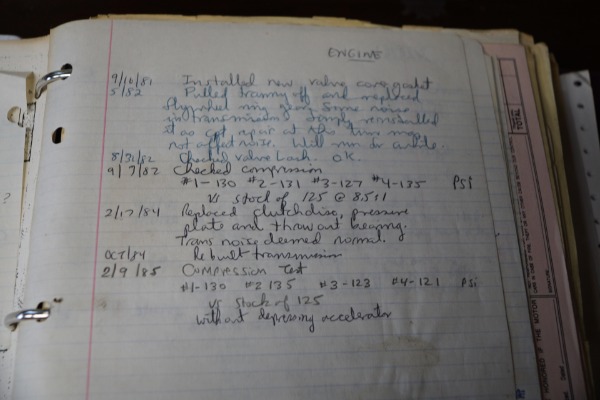 ENGINE
9/16/81 Installed new valve cover gasket
5/82 Pulled tranny off and replaced
flywheel ring gear. Some noise
in transmission. Simply reinstalled
it as
not affect noise. Will run for awhile.
8/31/82 Checked valve lash. O.K.
9/7/82 Checked compression
#1-130 #2-131 #3-127 #4-135 PSi
Vs stock of 125 @ 8.5:1
2/17/84 Replaced clutch disc, pressure
plate and throw out bearing.
Trans noise deemed normal.
Oct/84 Rebuilt transmission
2/9/85 Compression Test
#1-130 #2 135 #3-123 #4-121 PSi
vs stock of 125
without depressing accelerator
TOTAL